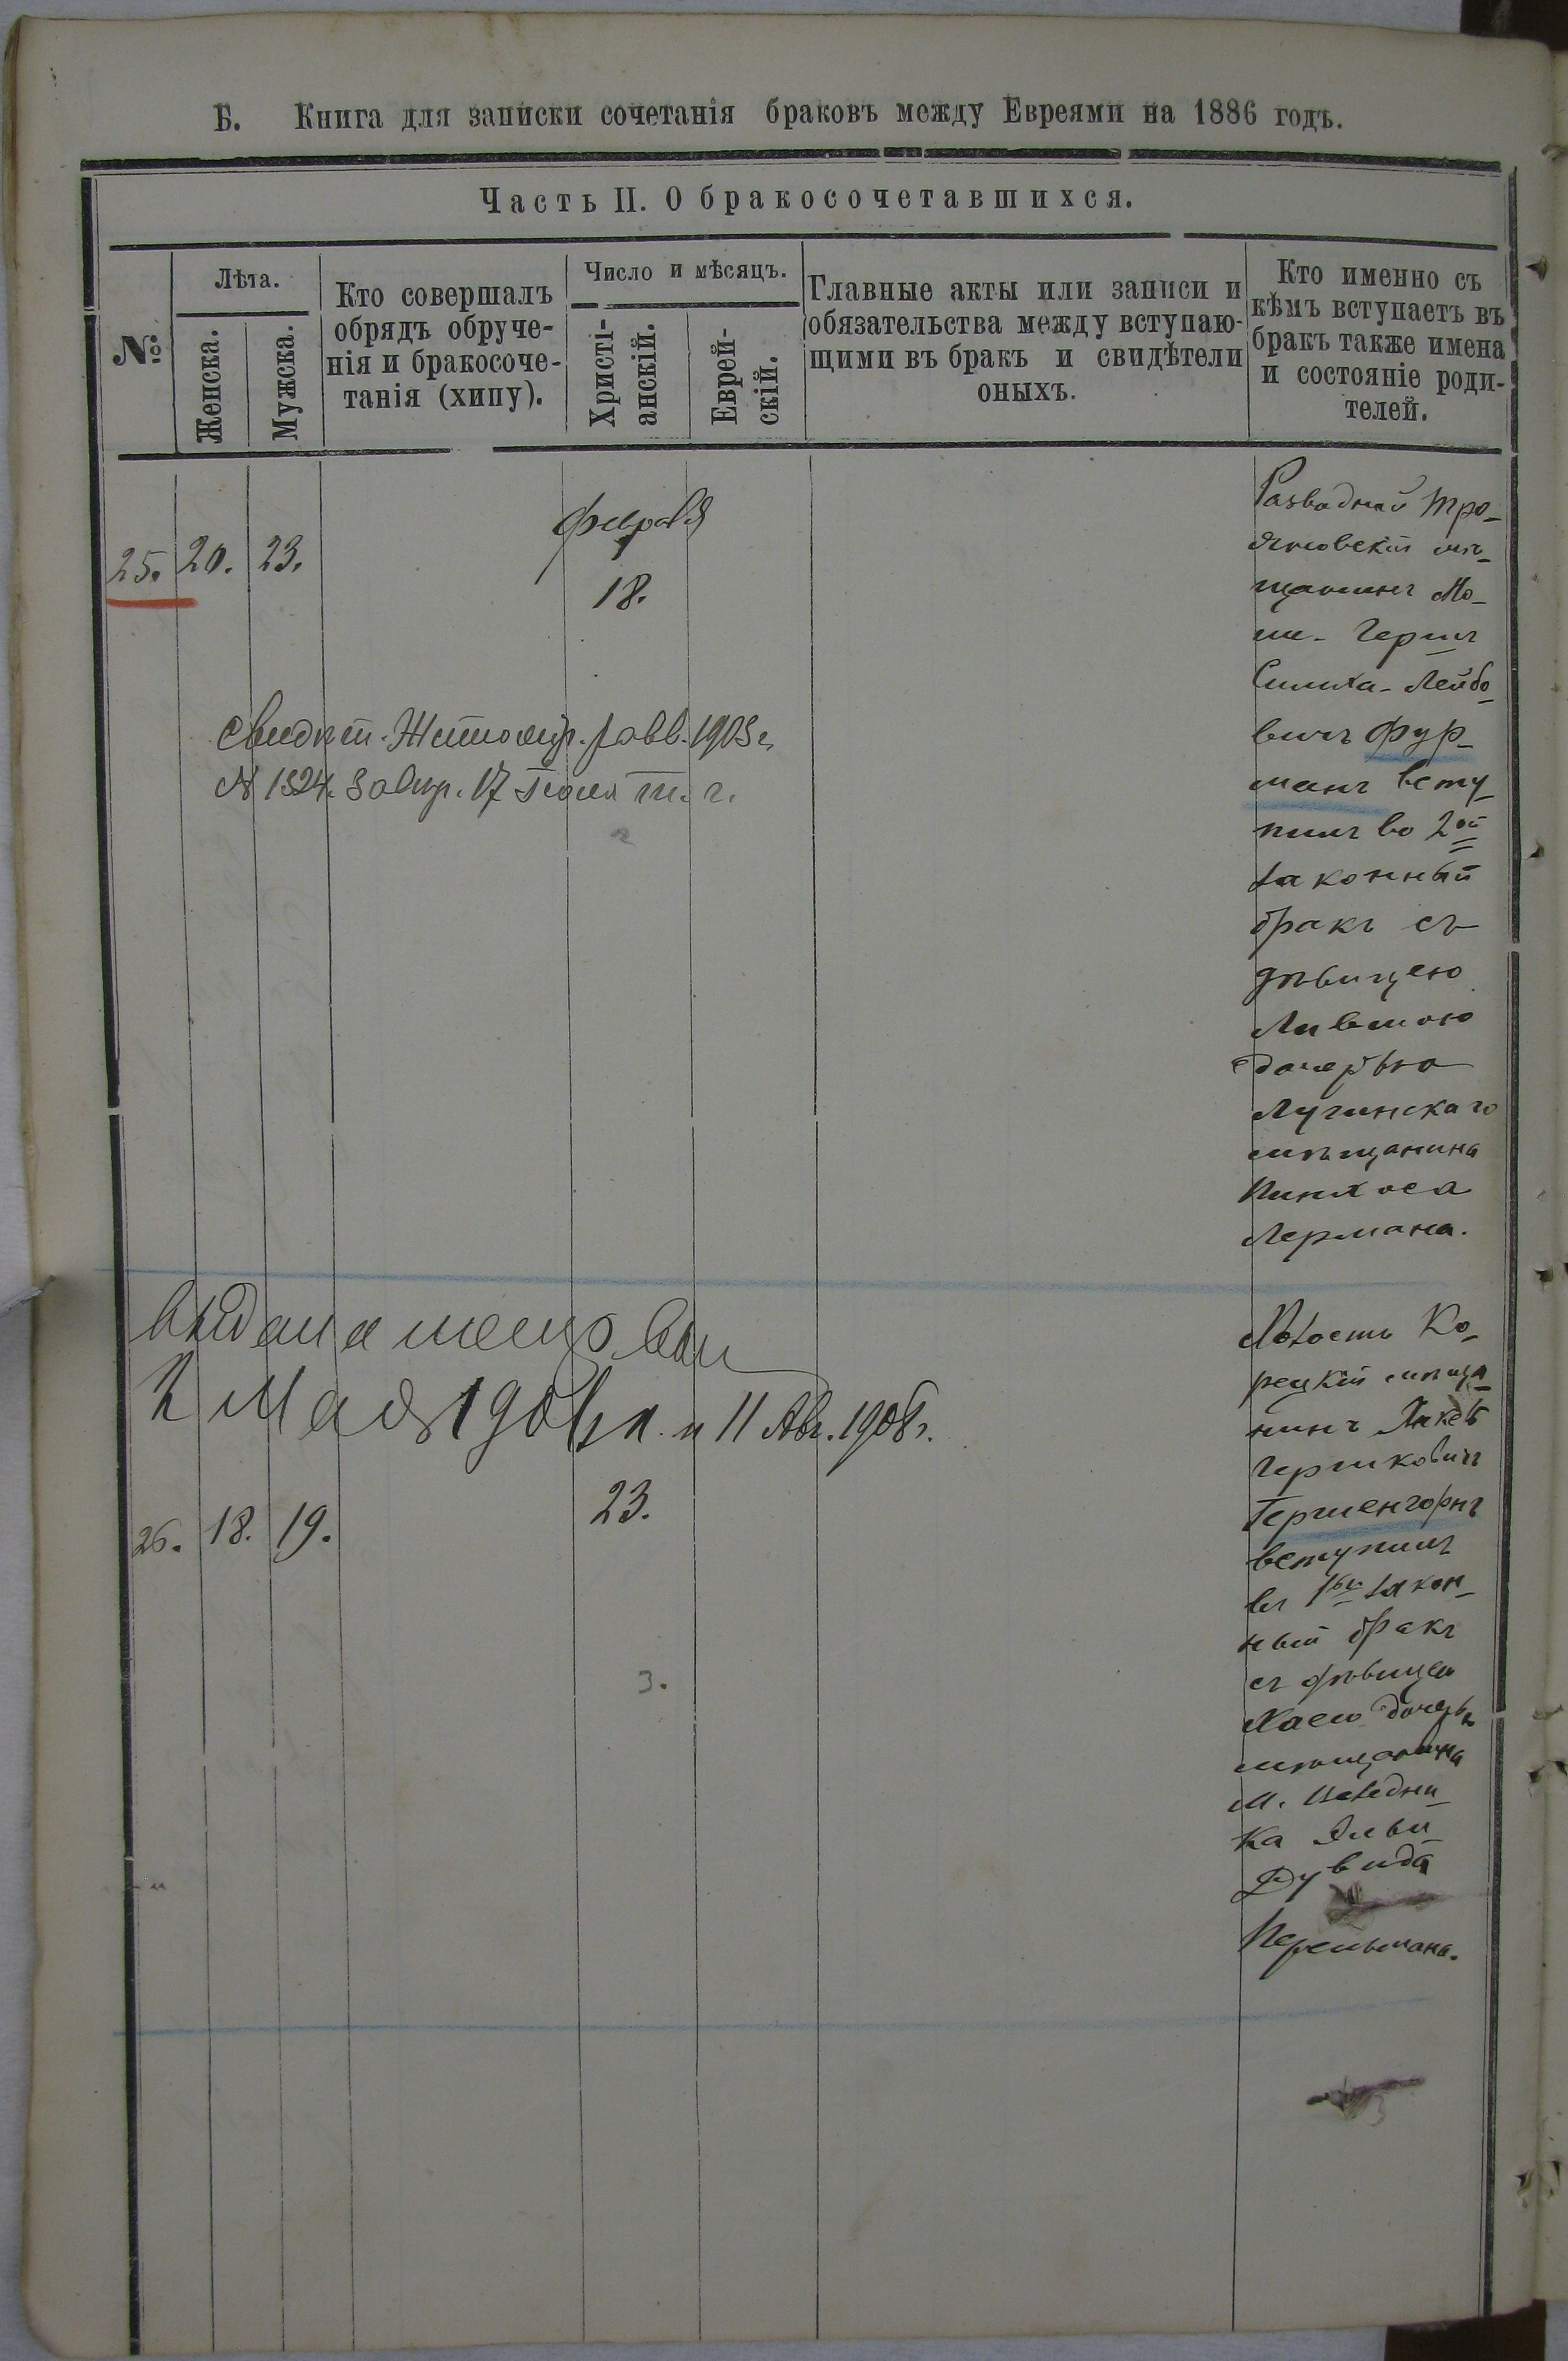 Б. Книга для записки сочетанія браковъ между Евреями на 1886 годъ.
Часть II. О бракосочетавшихся.
№
Лѣта.
Женска.
Мужска.
Кто совершалъ
обрядъ обруче-
нія и бракосоче-
танія (хипу).
Число и мѣсяцъ.
Христі-
анскій.
Еврей-
скій.
Главные акты или записи и
обязательства между вступаю-
щими въ бракъ и свидѣтели
оныхъ.
Кто именно съ
кѣмъ вступаетъ въ
бракъ также имена
и состояніе роди-
телей.
25. 20. 23.
Февраля
18.
Разводный Тро-
яновскій мѣ-
щанинъ Мо-
ше-Герш
Симха-Лейбо-
вичъ Фур-
манъ всту-
пилъ во 2ой
законный
бракъ съ
дѣвицею
дочерью
Лугинскаго
мѣщанина
Пинхоса
Лермана.
Свидѣт. Житомір. равв. 1903 г.
№ 1324. Завир. 17 Іюля т. г.
2
выдана
2 Мая и 11 Авг. 1908 г.
26. 18. 19.
23.
3.
Холость Ко-
рецкій мѣща-
нинъ Янкель
Гершковичъ
Гершенгорнъ
вступилъ
въ 1ый закон-
ный бракъ
съ дѣвицею
Хаею дочерью
мѣщанина
м.
ка
Дувида
Перельмана.